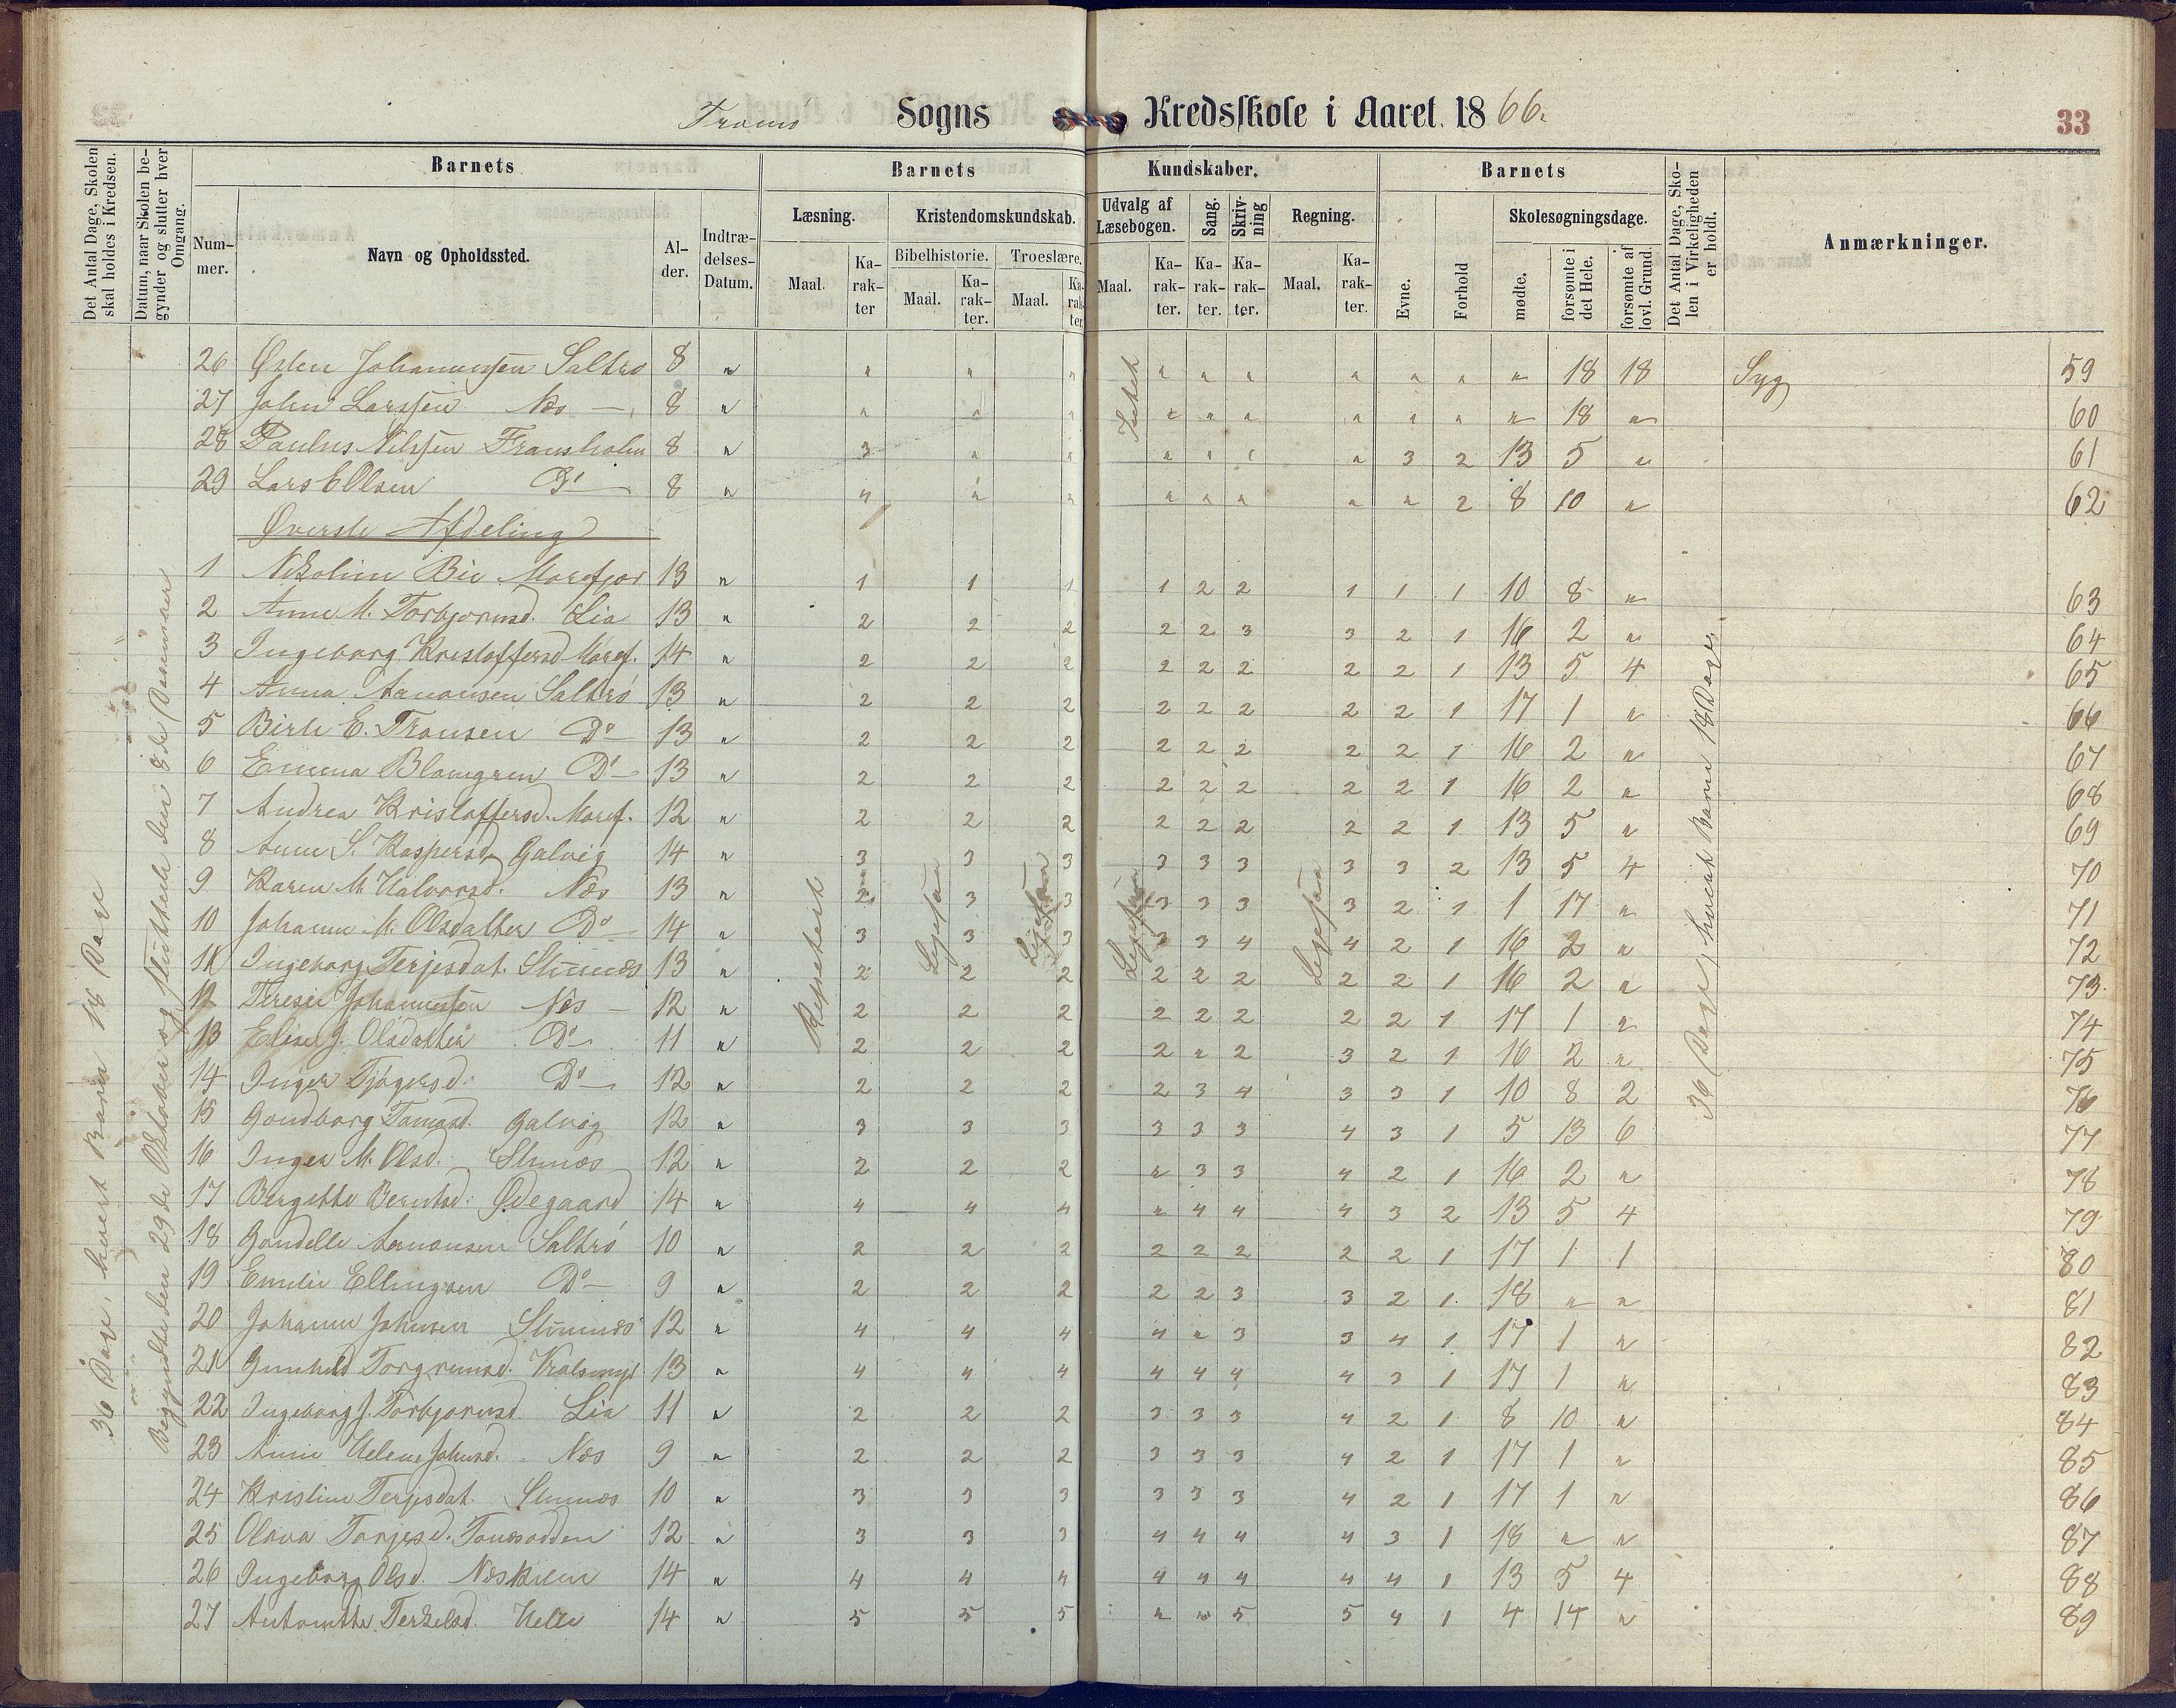 Tromø Sogns Kredsskole i Aaret 1866.
33
Det Antal Dage, Skolen skal holdes i Kredsen.
Datum, naar Skolen begynder og slutter hver Omgang.
Barnets
Barnets Kundskaber.
Barnets
Det Antal Dage, Skolen i Virkeligheden er holdt.
Anmærkninger.
Nummer.
Navn og Opholdssted.
Alder.
Indtrædelses-Datum.
Læsning.
Kristendomskundskab.
Udvalg af Læsebogen.
Sang.
Skrivning
Regning.
Evne.
Forhold
Skolesøgningsdage.
Bibelhistorie.
Troeslære.
Maal.
Karakter
Maal.
Karakter.
Maal.
Karakter.
Maal.
Karakter.
Karakter.
Karakter.
Maal.
Karakter.
mødte.
forsømte i det Hele.
forsømte af lovl. Grund.
26 Østen Johannessen Saltrø 8 " " " " " " " " " " " 18 18 Syg 59
27 John Larssen Næs 8 " " " " " " " " " " " 18 " 60
28 Paulus Nilssen Fransholm 8 " 3 " " " " " " 3 2 13 5 " 61
29 Lars E Olsen Do 8 " 4 " " " " " " " 2 8 10 " 62
Øverste Afdeling
1 Nikoline Bie Morefjær 13 " 1 1 1 1 2 2 1 1 1 10 8 " 63
2 Anne M. Torbjørnsd. Lia 13 " 2 2 2 2 2 3 3 2 1 16 2 " 64
3 Ingeborg Kristoffersd Moref. 14 " 2 2 2 2 2 2 2 2 1 13 5 4 65
4 Anna Aanonsen Saltrø 13 " 2 2 2 2 2 2 2 2 1 17 1 " 66
5 Birte E. Fransen Do 13 " 2 2 2 2 2 2 2 2 1 16 2 " 67
6 Emma Blomgren Do 13 " 2 2 2 2 2 2 2 2 1 16 2 " 68
7 Andrea Kristoffersd. Moref. 12 " 2 2 2 2 2 2 2 2 1 13 5 " 69
8 Anne S. Kaspersd. Galvig 14 " 3 3 3 3 3 3 3 3 2 13 5 4 70
9 Karen M. Halvorsd. Næs 13 " 2 3 3 3 3 3 3 2 1 1 17 " 71
10 Johanne M. Olsdatter Do 14 " 3 3 3 3 3 4 4 2 1 16 2 " 72
11 Ingeborg Terjesdat. Stuenæs 13 " 2 2 2 2 2 2 2 2 1 16 2 " 73
12 Teresie Johannessen Næs 12 " 2 2 2 2 2 2 2 2 1 17 1 " 74
13 Elise J. Olsdatter Do 11 " 2 2 2 2 " 2 3 2 1 16 2 " 75
14 Inger Tjøgersd. Do 12 " 2 2 2 2 3 4 3 3 1 10 8 2 76
15 Gondborg Tomasd. Galvig 12 " 3 3 3 3 3 3 4 3 1 5 13 6 77
16 Inger M. Olsd. Stuenæs 12 " 2 2 2 " 3 3 4 2 1 16 2 " 78
17 Bergitte Berntsd. Ødegaard 14 " 4 4 4 " 4 4 4 3 2 13 5 4 79
18 Gondelle Aanonsen Saltrø 10 " 2 2 2 2 2 2 2 2 1 17 1 1 80
19 Emilie Ellingsen Do 9 " 2 2 2 2 2 3 3 2 1 18 " " 81
20 Johanne Johnsen Stuenæs 12 " 4 4 4 4 " 3 3 4 1 17 1 " 82
21 Gunhild Torgrimsd. 13 " 4 4 4 4 4 4 4 3 1 17 1 " 83
22 Ingeborg J. Torbjørnsd. Lia 11 " 2 2 2 3 3 3 4 2 1 8 10 " 84
23 Anne Helene Johnsd. Næs 9 " 2 2 2 3 3 3 4 2 1 17 1 " 85
24 Kristine Terjesdat. Stuenæs 10 " 3 3 3 3 3 3 4 2 1 17 1 " 86
25 Olava Tarjesd. Tonesodden 12 " 3 3 3 4 4 4 4 3 1 18 " " 87
26 Ingeborg Olsd. Næskilen 14 " 4 4 4 4 4 4 4 4 1 13 5 4 88
27 Antonette Terkelsd. Helle 14 " 5 5 5 " " 5 5 4 1 4 14 " 89
36 Dage, hvert Barn 18 Dage
Begyndte den 29de Oktober og sluttede den 8de December
Repeteret
Ligesaa
Ligesaa
Ligesaa
Ligesaa
36 Dage, hvert Barn 18 Dage.